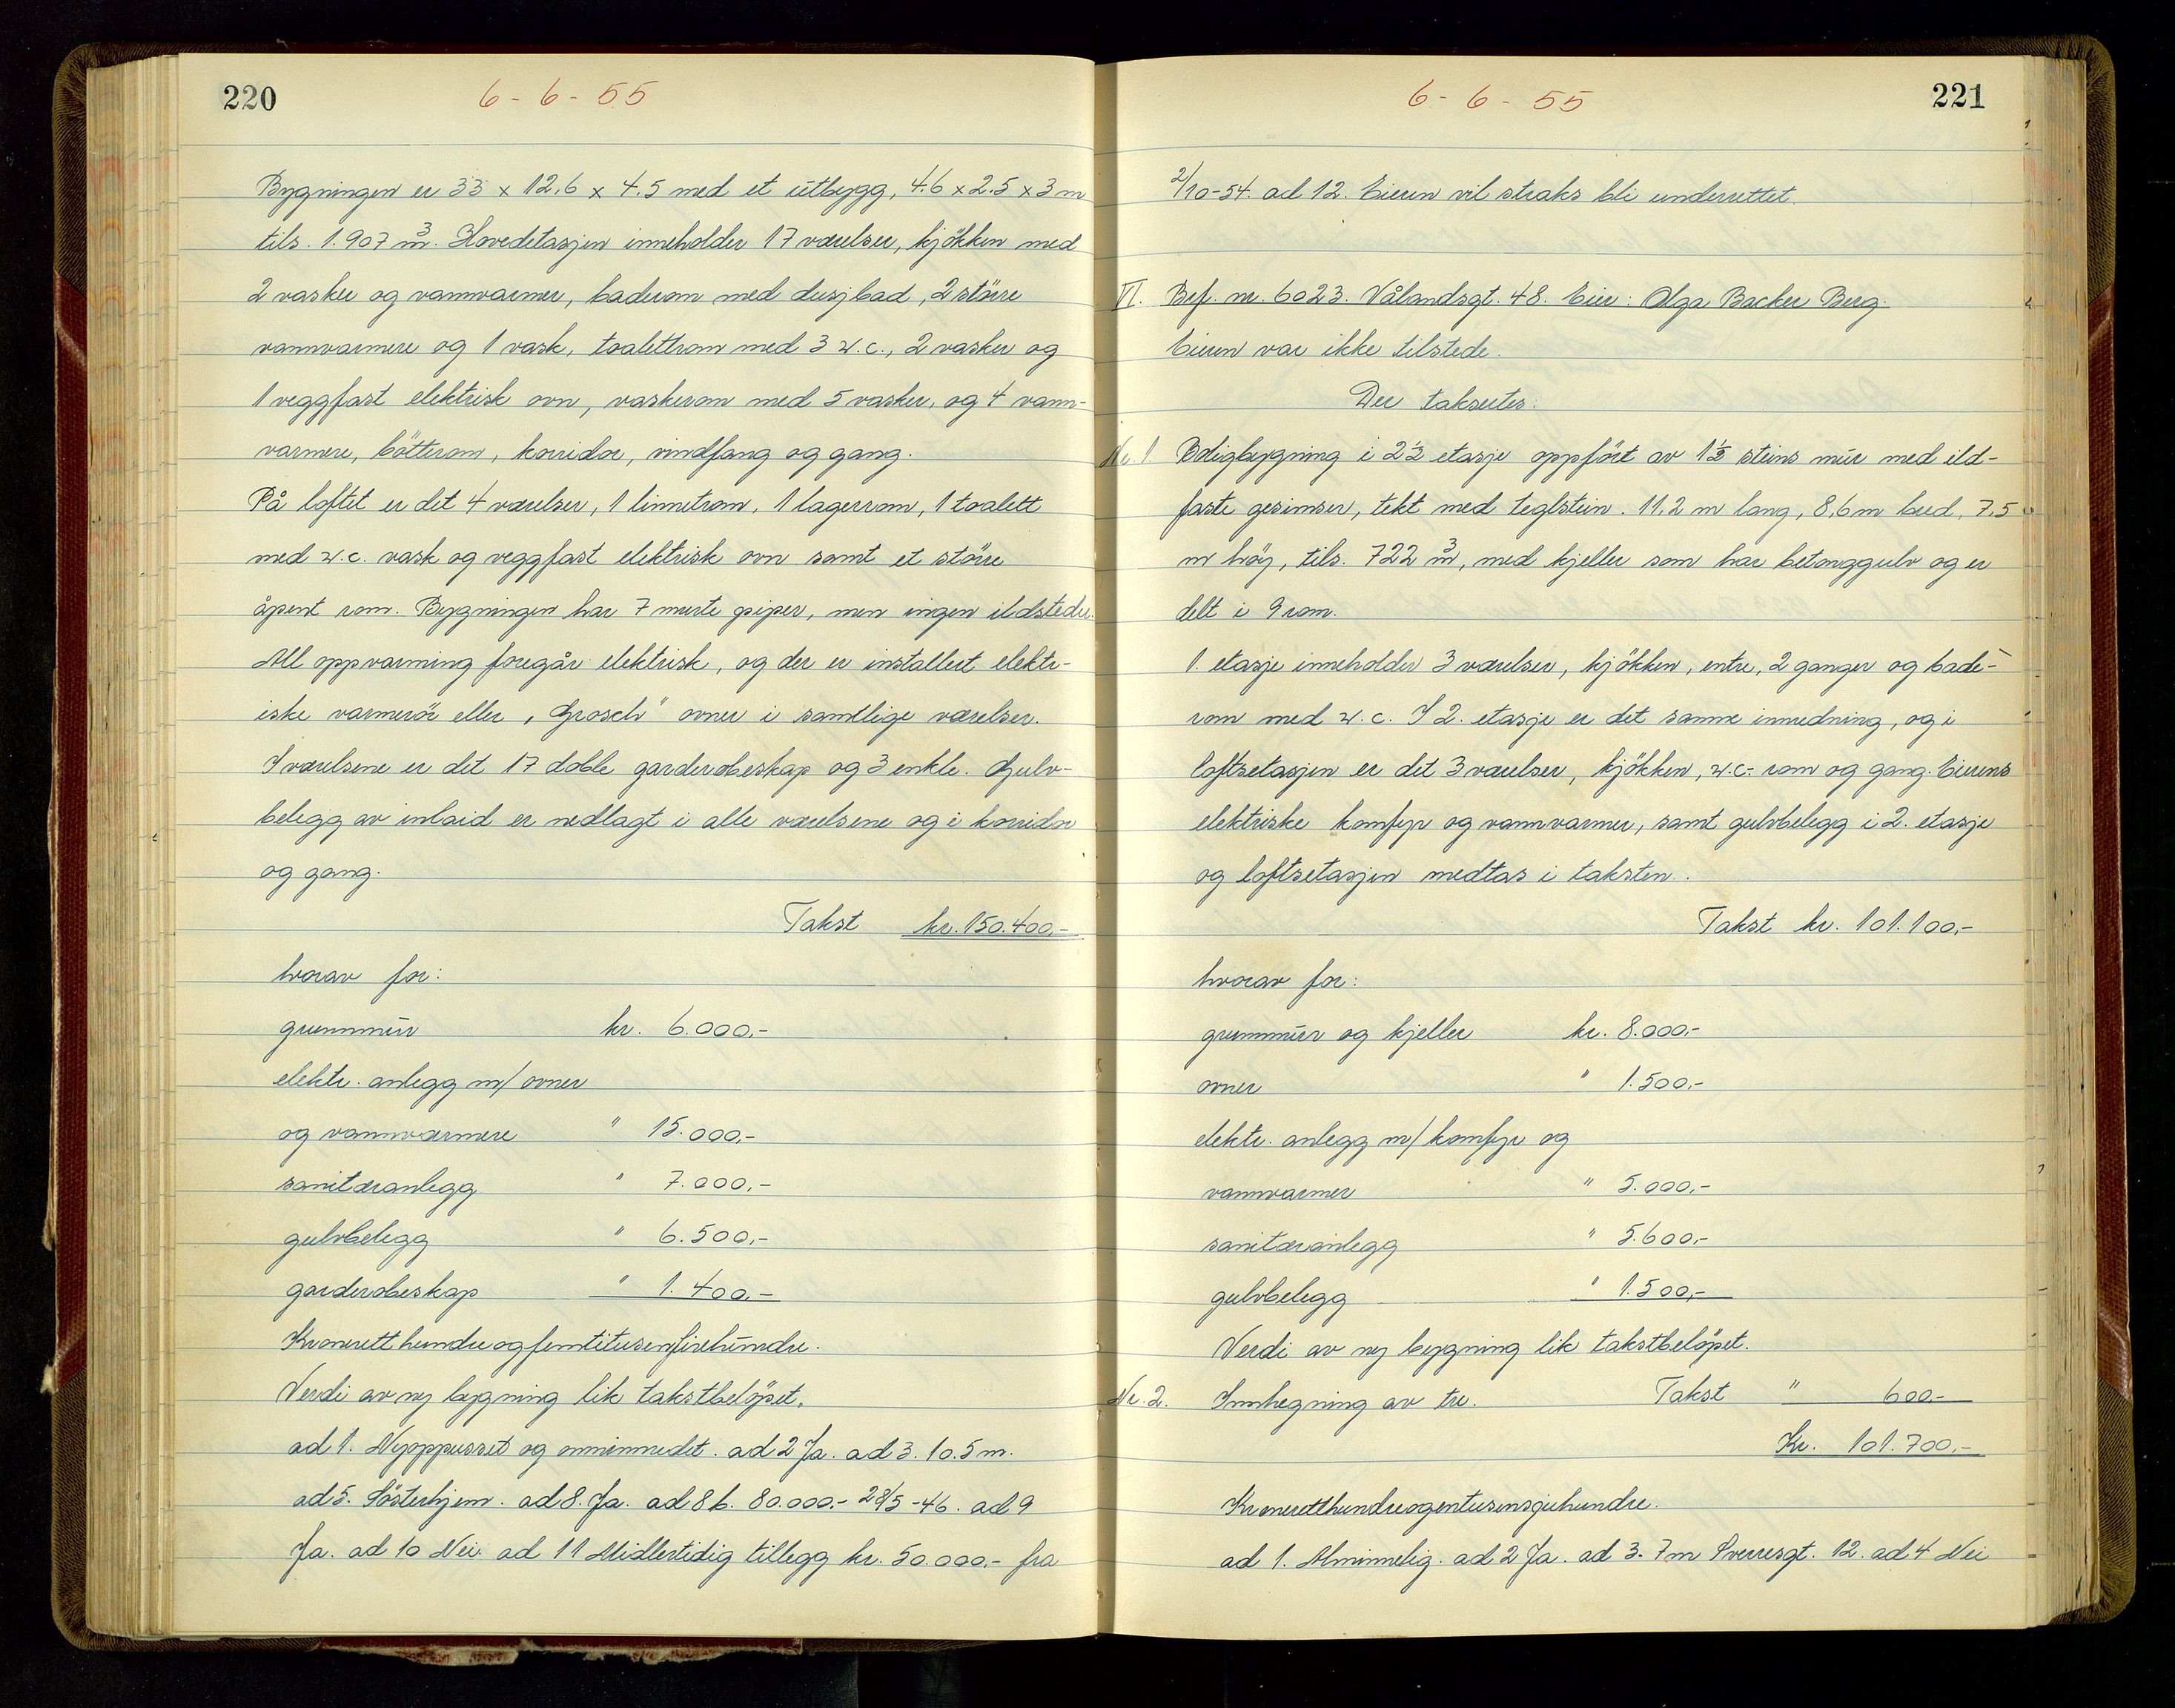 220
6-6-55
Bygningen er 33 x 12,6 x 4.5 med et utbygg, 4.6 x 2.5 x 3 m
tils. 1.907 m³. Hovedetasjen inneholder 17 værelser, kjökken med
2 vasker og vannvarmer, baderom med dusjbad, 2 större
vannvarmere og 1 vask, toalettrom med 3 w.c., 2 vasker og
1 veggfast elektrisk ovn, vaskerom med 5 vasker, og 4 vann-
varmere, bötterom, korridor, vindfang og gang.
På loftet er det 4 værelser, 1 linnetrom, 1 lagerrom, 1 toalett
med w.c. vask og veggfast elektrisk ovn samt et större
åpent rom. Bygningen har 7 murte piper, men ingen ildsteder.
All oppvarming foregår elektrisk, og der er installert elektr-
iske varmerör eller "Grosch" ovner i samtlige værelser.
I værelsene er det 17 doble garderobeskap og 3 enkle. Gulv-
belegg av inlaid er nedlagt i alle værelsene og i korridor
og gang.
Takst kr. 150.400,-
hvorav for:
grunnmur kr. 6.000,-
elektr. anlegg m/ ovner
og vannvarmere " 15.000,-
sanitæranlegg " 7.000,-
gulvbelegg " 6.500,-
garderobeskap " 1.400,-
Kronerett hundreogfemtitusenfirehundre.
Verdi av ny bygning lik takstbelöpet.
ad 1. Nyoppusset og ominnredet. ad 2 Ja. ad 3. 10.5 m.
ad 5. Sösterhjem. ad 8. Ja. ad 8 b. 80.000.- 28/5-46. ad 9
Ja. ad 10 Nei. ad 11 Midlertidig tillegg kr. 50.000.- fra
221
6-6-55
2/10-54. ad 12. Eieren vil straks bli underrettet.
VI. Bef. nr. 6023. Vålandsgt. 48. Eier: Olga Backer Berg.
Eieren var ikke tilstede.
Der takseres:
Nr. 1 Boligbygning i 2½ etasje oppfört av 1½ steins mur med ild-
faste gesimser, tekt med teglstein. 11,2 m lang, 8,6 m bred, 7,5
m höy, tils. 722 m³, med kjeller som har betonggulv og er
delt i 9 rom.
1. etasje inneholder 3 værelser, kjökken, entre, 2 ganger og bade-
rom med w.c. I 2. etasje er det samme innredning, og i
loftsetasjen er det 3 værelser, kjökken, w.c.-rom og gang. Eierens
elektriske komfyr og vannvarmer, samt gulvbelegg i 2. etasje
og loftsetasjen medtas i taksten.
Takst kr. 101.100,-
hvorav for:
grunnmur og kjeller kr. 8.000,-
ovner " 1.500,-
elektr. anlegg m/ komfyr og
vannvarmer " 5.000,-
sanitæranlegg " 5.600,-
gulvbelegg " 1.500,-
Verdi av ny bygning lik takstbelöpet.
Nr. 2. Innhegning av tre. Takst " 600,-
Kr. 101.700,-
Kroneretthundreogentusensjuhundre.
ad 1. Alminnelig. ad 2 Ja. ad 3. 7 m Sverresgt. 12. ad 4 Nei